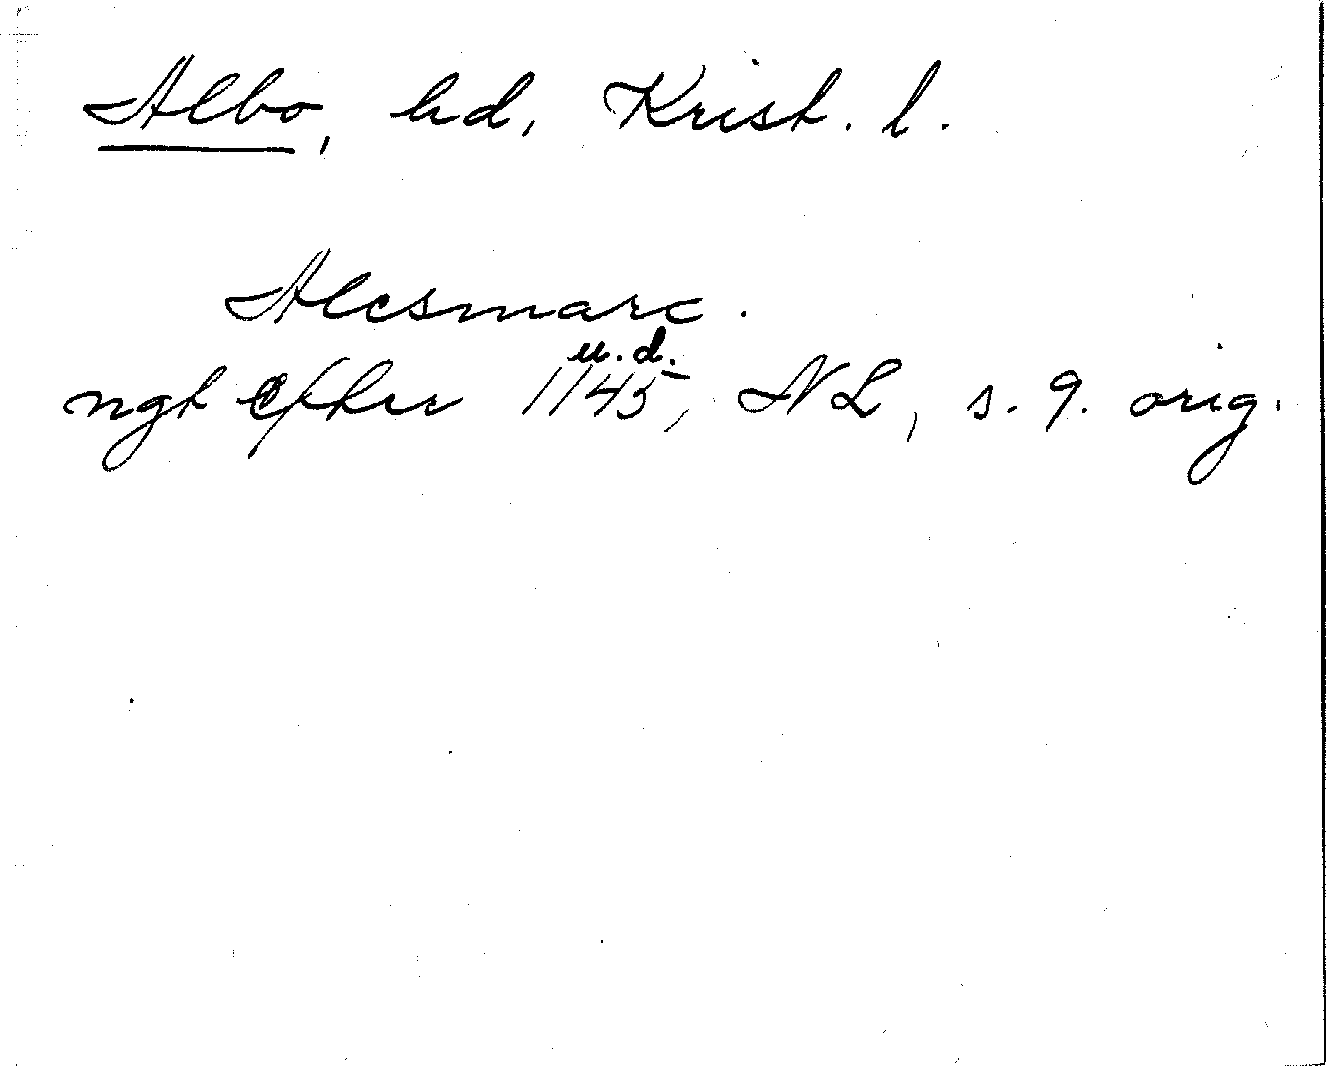 Albo, hd, Krist. l.
Alesmarc.
u.d.
ngt efter 1145, NL, s. 9. orig.